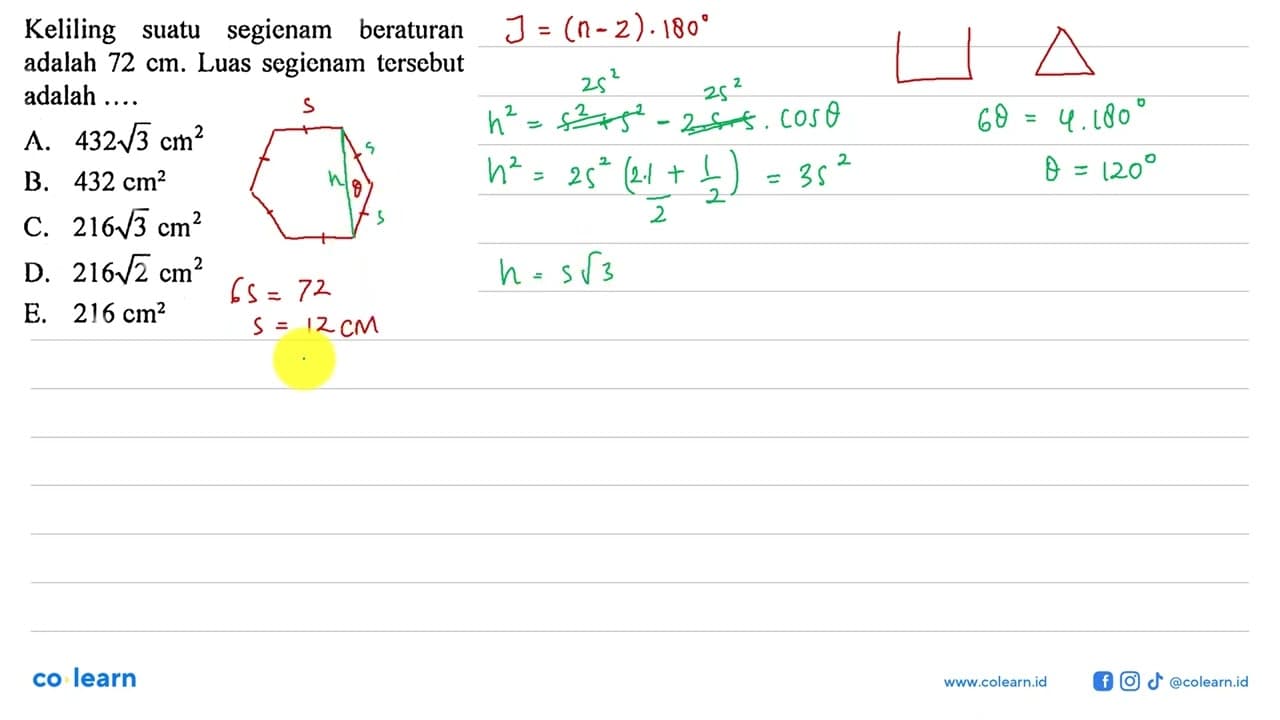 Keliling suatu segienam beraturan
adalah 72 cm. Luas segienam tersebut
adalah ....
A. 432√3 cm²
B. 432 cm²
C. 216√3 cm²
D. 216√2 cm²
E. 216 cm²
s
s
h
θ
s
6s = 72
s = 12 cm
J = (n-2).180°
2s² 2s²
h² = s² + s² - 2.s.s. cosθ
h² = 2s² (2.1/2 + 1/2) = 3s²
h = s√3
6θ = 4.180°
θ = 120°
co learn
www.colearn.id
@colearn.id